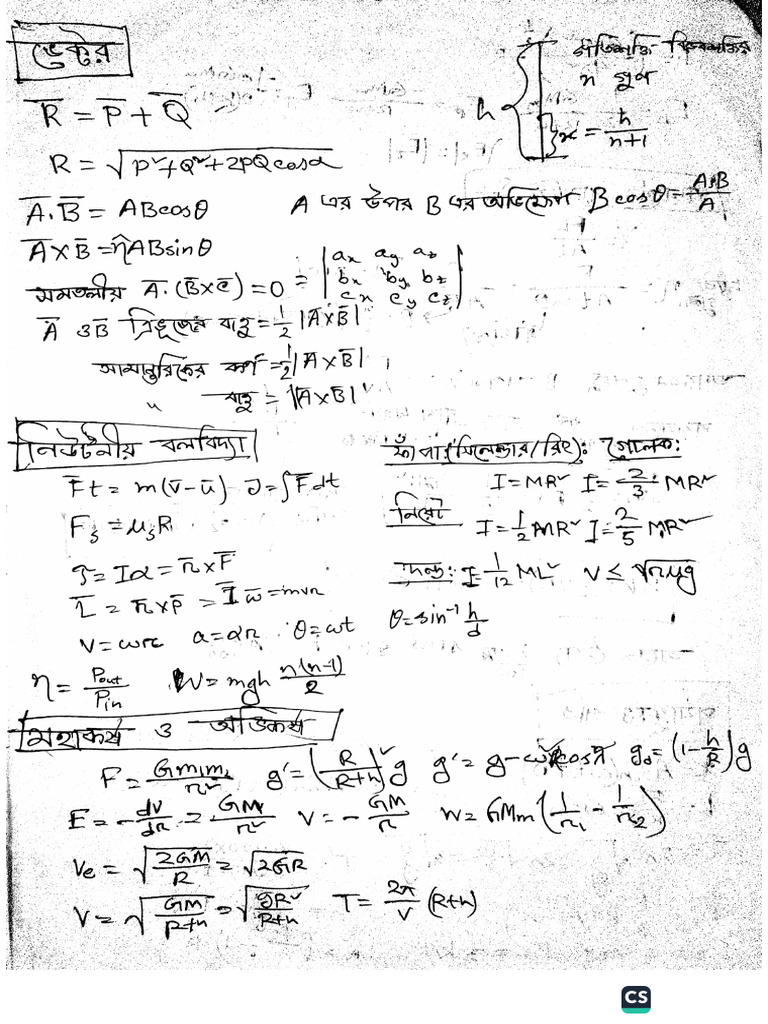 ভেক্টর
গতিশক্তি বিভবশক্তির
n গুণ
h
x = h/(n+1)
R̅ = P̅ + Q̅
R = √(P² + Q² + 2PQ cosα)
A̅.B̅ = AB cosθ
A এর উপর B এর অভিক্ষেপ B cosθ = A.B/A
A̅×B̅ = η̂ AB sinθ
সমতলীয় A̅.(B̅×C̅) = 0 = |ax ay az; bx by bz; cx cy cz|
A̅ ও B̅ ত্রিভূজের বাহু = 1/2 |A̅×B̅|
সামান্তরিকের কর্ণ = 1/2 |A̅×B̅|
" বাহু = |A̅×B̅|
নিউটনীয় বলবিদ্যা
F̅t = m(v̅-u̅) J = ∫F̅dt
Fs = μsR
τ = Iα = r̅×F̅
L̅ = r̅×p̅ = I̅ω̅ = mvr
v = ωr a = αr θ = ωt
η = Pout/Pin W = mgh n(n-1)/2
ফাঁপা (সিলেন্ডার/রিং): গোলক:
I = MR² I = 2/3 MR²
নিরেট I = 1/2 MR² I = 2/5 MR²
দন্ড: I = 1/12 ML² v ≤ √rμg
θ = sin⁻¹ h/d
মহাকর্ষ ও অভিকর্ষ
F = Gm₁m₂/r² g' = (R/(R+h))² g g' = g-ω²Rcos²λ gd = (1-h/R)g
E = -dv/dr = GM/r² V = -GM/r W = GMm(1/r₁ - 1/r₂)
Ve = √(2GM/R) = √2GR
V = √(GM/(R+h)) = √(gR²/(R+h)) T = 2π/V (R+h)
CS